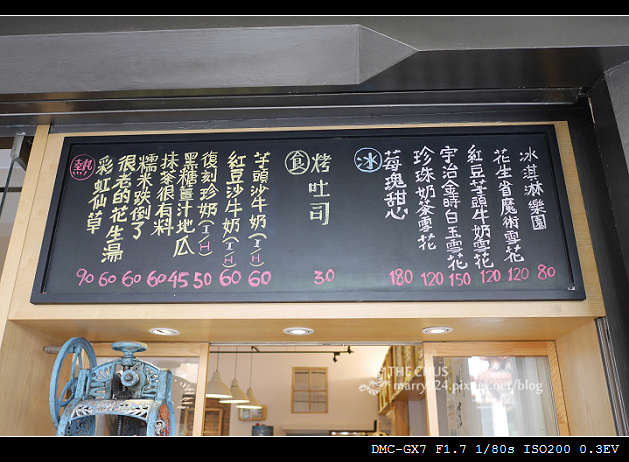 熱
彩虹仙草
90
很老的花生湯
60
糯米跌倒了
60
抹茶很有料
60
黑糖薑汁地瓜
45
復刻珍奶(I.H)
50
紅豆沙牛奶(I.H)
60
芋頭沙牛奶(I.H)
60
食
烤吐司
30
冰
莓瑰甜心
180
珍珠奶茶雪花
120
宇治金時白玉雪花
150
紅豆芋頭牛奶雪花
120
花生省魔術雪花
120
冰淇淋樂園
80
THE CHUS
marry024.pixnet.net/blog
DMC-GX7 F1.7 1/80s ISO200 0.3EV